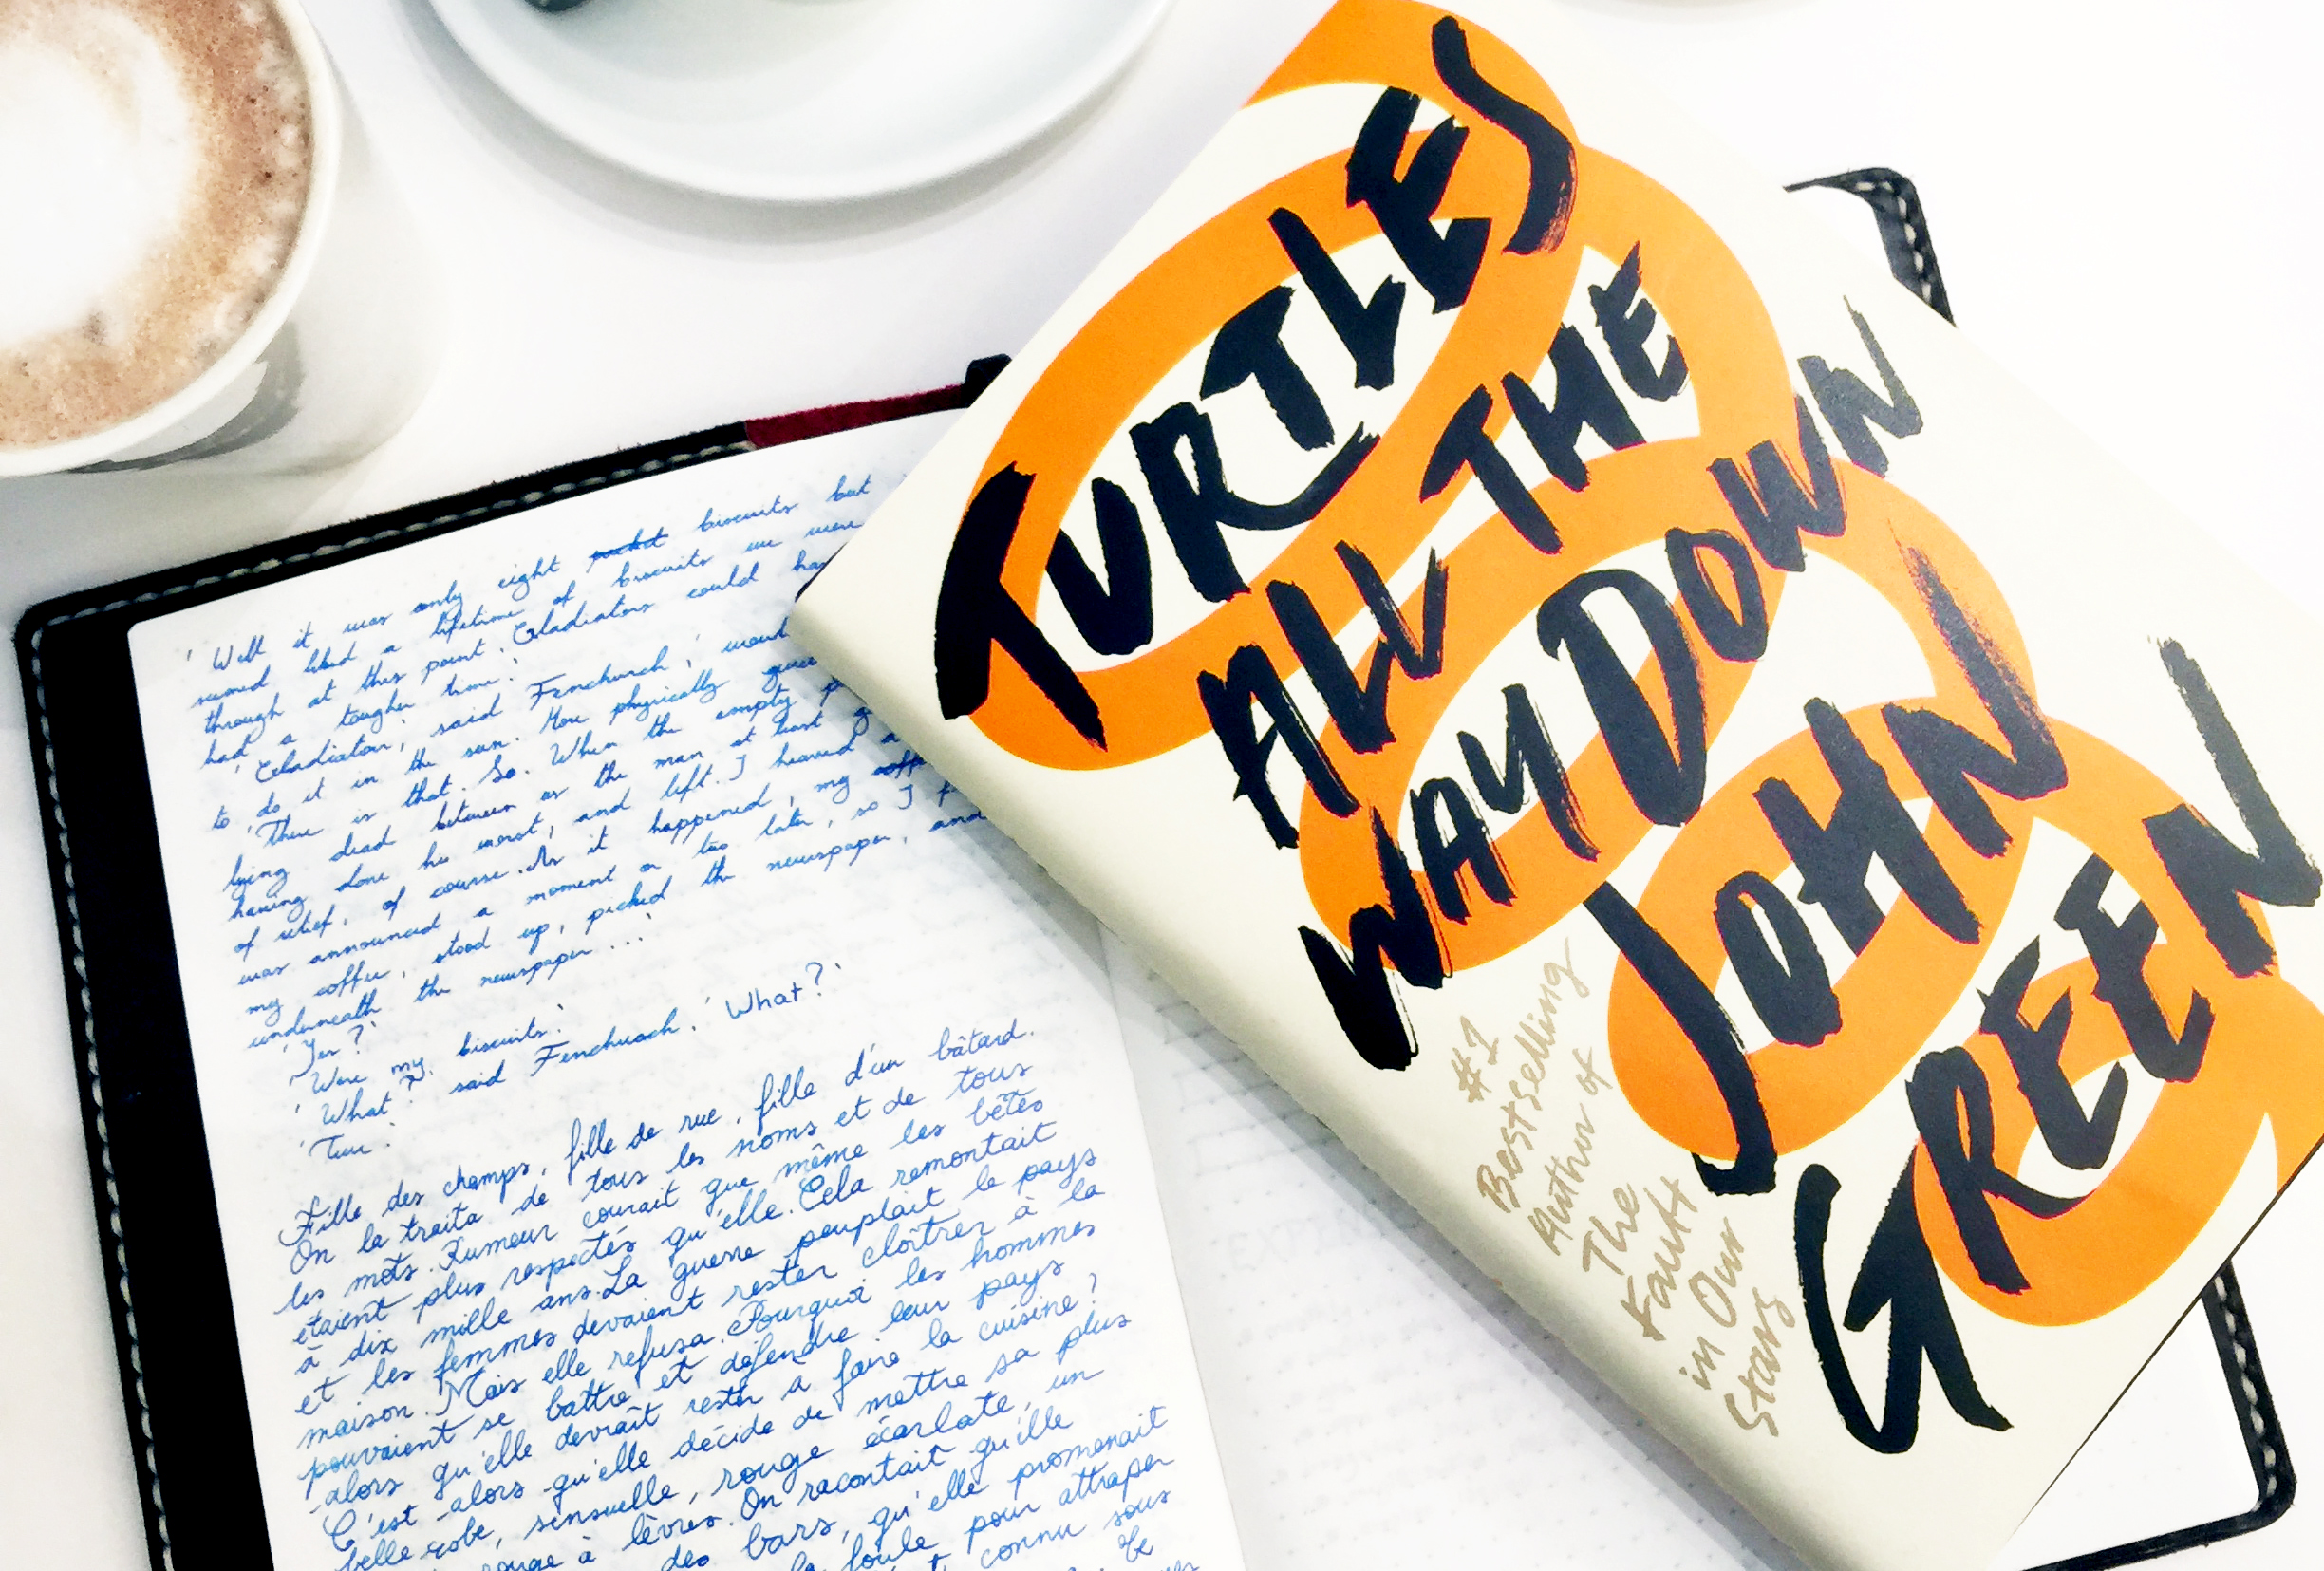 ' Well it was only eight packet biscuits but
seemed liked a lifetime of biscuits we were
through at this point. Gladiators could ha
had a tougher time.'
' Gladiators,' said Fenchurch,
to do it in the sun. More physically
' There is that. So. When the empty
lying dead between us the man at last
having done his worst, and left. I heaved a
of relief, of course. As it happened, my
was announced a moment or two later, so I
my coffee, stood up, picked the newspaper, and
underneath the newspaper ...'
' Yes ?'
' Were my biscuits.'
' What?' said Fenchurch. ' What?'
' True.'
Fille des champs, fille de rue, fille d'un bâtard.
On la traita de tous les noms et de tous
les mots. Rumeur courait que même les bêtes
étaient plus respectés qu'elle. Cela remontait
à dix mille ans. La guerre peuplait le pays
et les femmes devaient rester cloîtrer à la
maison. Mais elle refusa. Pourquoi les hommes
pouvaient se battre et défendre leur pays
alors qu'elle devrait rester a faire la cuisine ?
C'est alors qu'elle décide de mettre sa plus
belle robe, sensuelle, rouge écarlate, un
rouge à lèvres. On racontait qu'elle
des bars, qu'elle promenait
la foule pour attraper
connu sous
TURTLES
ALL THE
WAY DOWN
JOHN
GREEN
#1
Bestselling
Author of
The
Fault
in Our
Stars